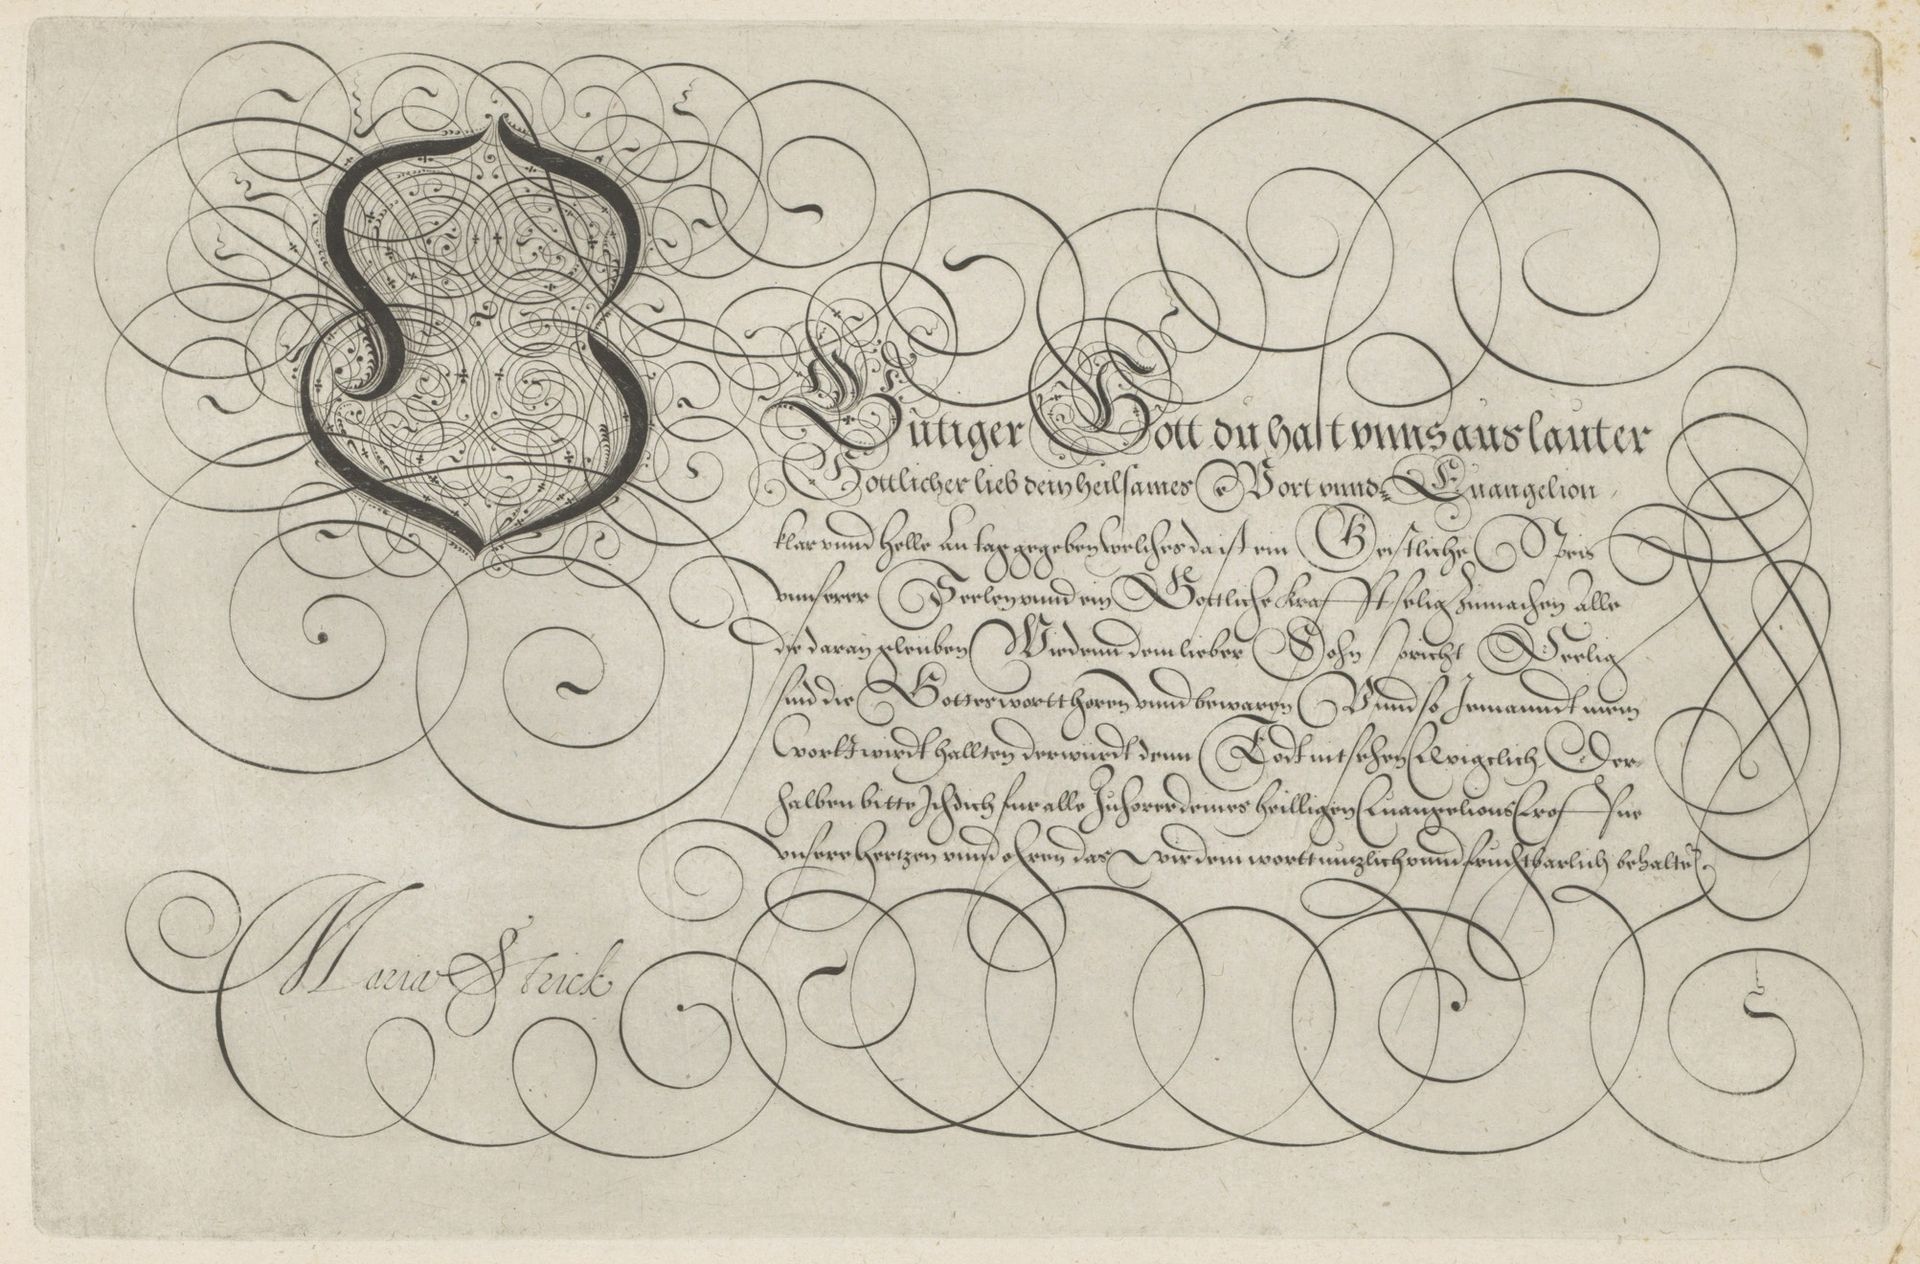 O Gütiger Gott du hast vnns aus lauter
Gottlicher lieb dein heilsames Wort vnnd Euangelion
klar vnnd helle an tag gegeben welches da ist ein Geistliche Speis
vnnserer Seelen vnnd ein Gottliche krafft selig zumachen alle
die daran gleuben Wie denn dein lieber Sohn spricht Seelig
sind die Gottes wortt horen vnnd bewaren Vnnd so Jemanndt mein
wortt wirdt hallten der wurdt denn Todt nit sehen Ewigelich Der-
halben bitte Ich dich fur alle Zuhorer deines heilligen Euangelions Eroffne
vnsere hertzen vnnd ohren das wir dein wortt nutzlich vnnd fruchtbarlich behaltē.
Maria Strick